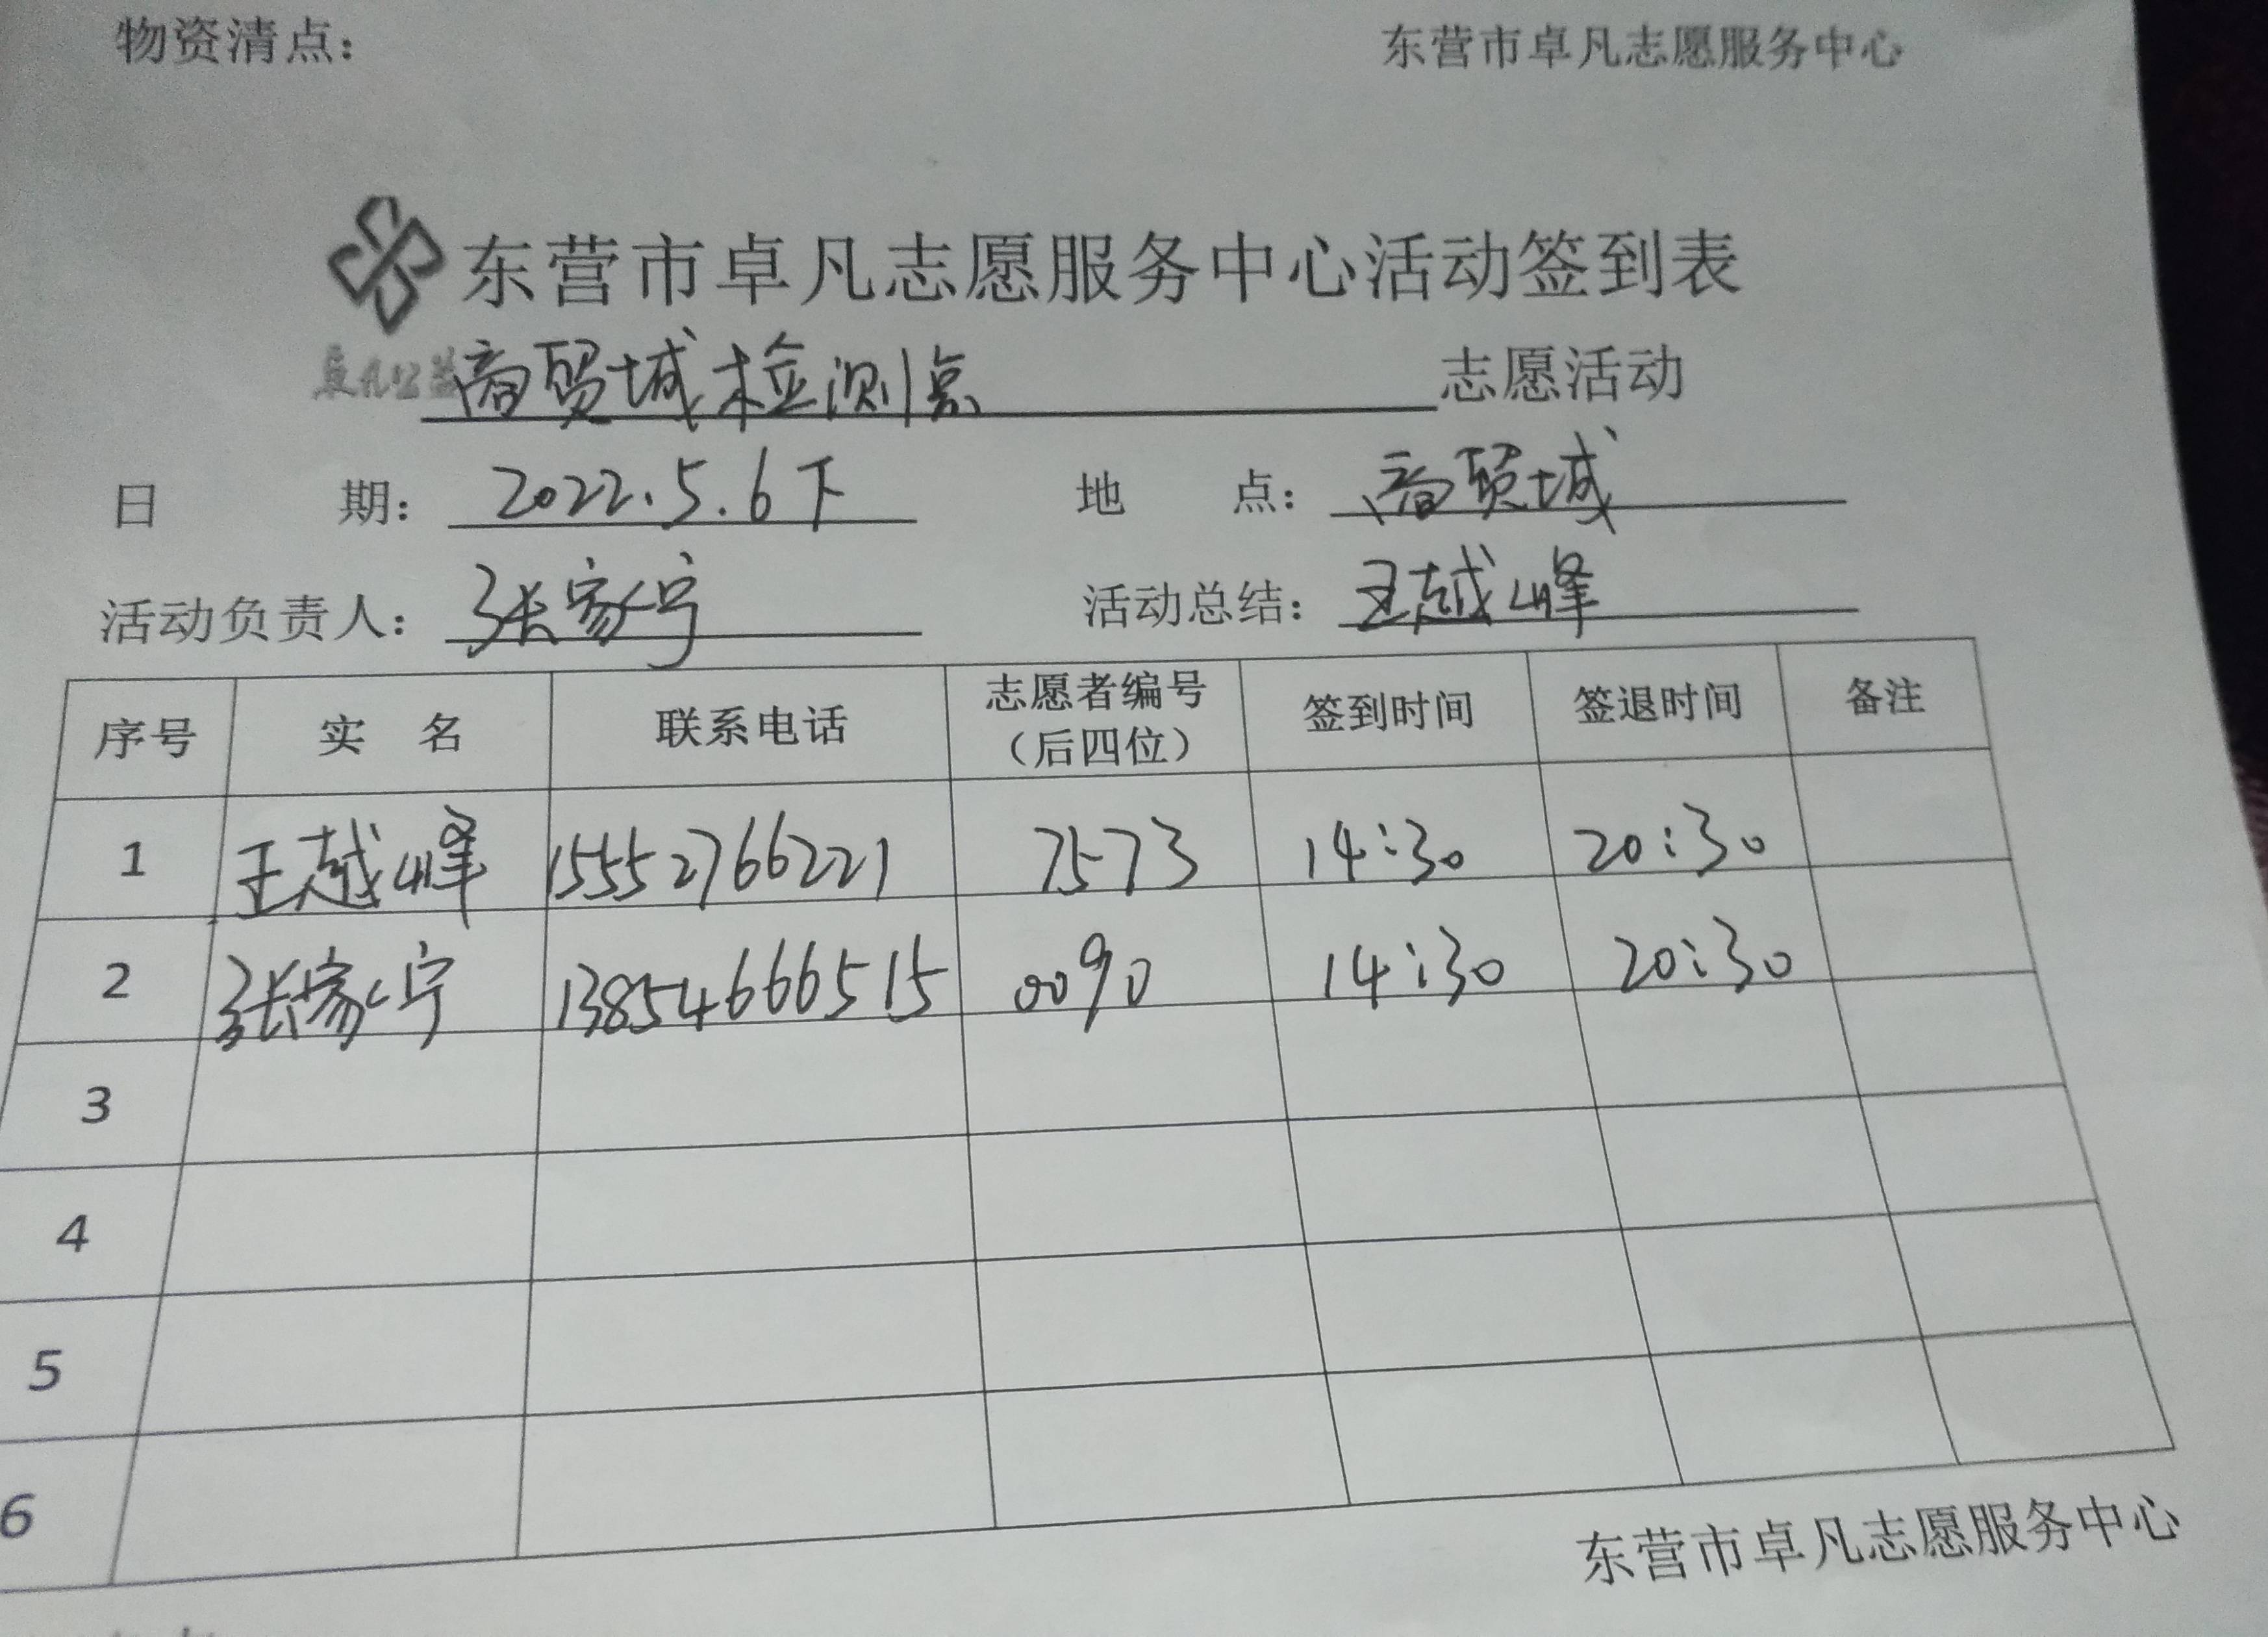 物资清点：
东营市卓凡志愿服务中心
东营市卓凡志愿服务中心活动签到表
卓凡公益
商贸城检测点 志愿活动
日 期： 2022.5.6下 地 点： 商贸城
活动负责人： 张家宁 活动总结： 王越峰
序号 实 名 联系电话 志愿者编号（后四位） 签到时间 签退时间 备注
1 王越峰 15552766221 7573 14:30 20:30
2 张家宁 13854666515 0090 14:30 20:30
3
4
5
6
东营市卓凡志愿服务中心